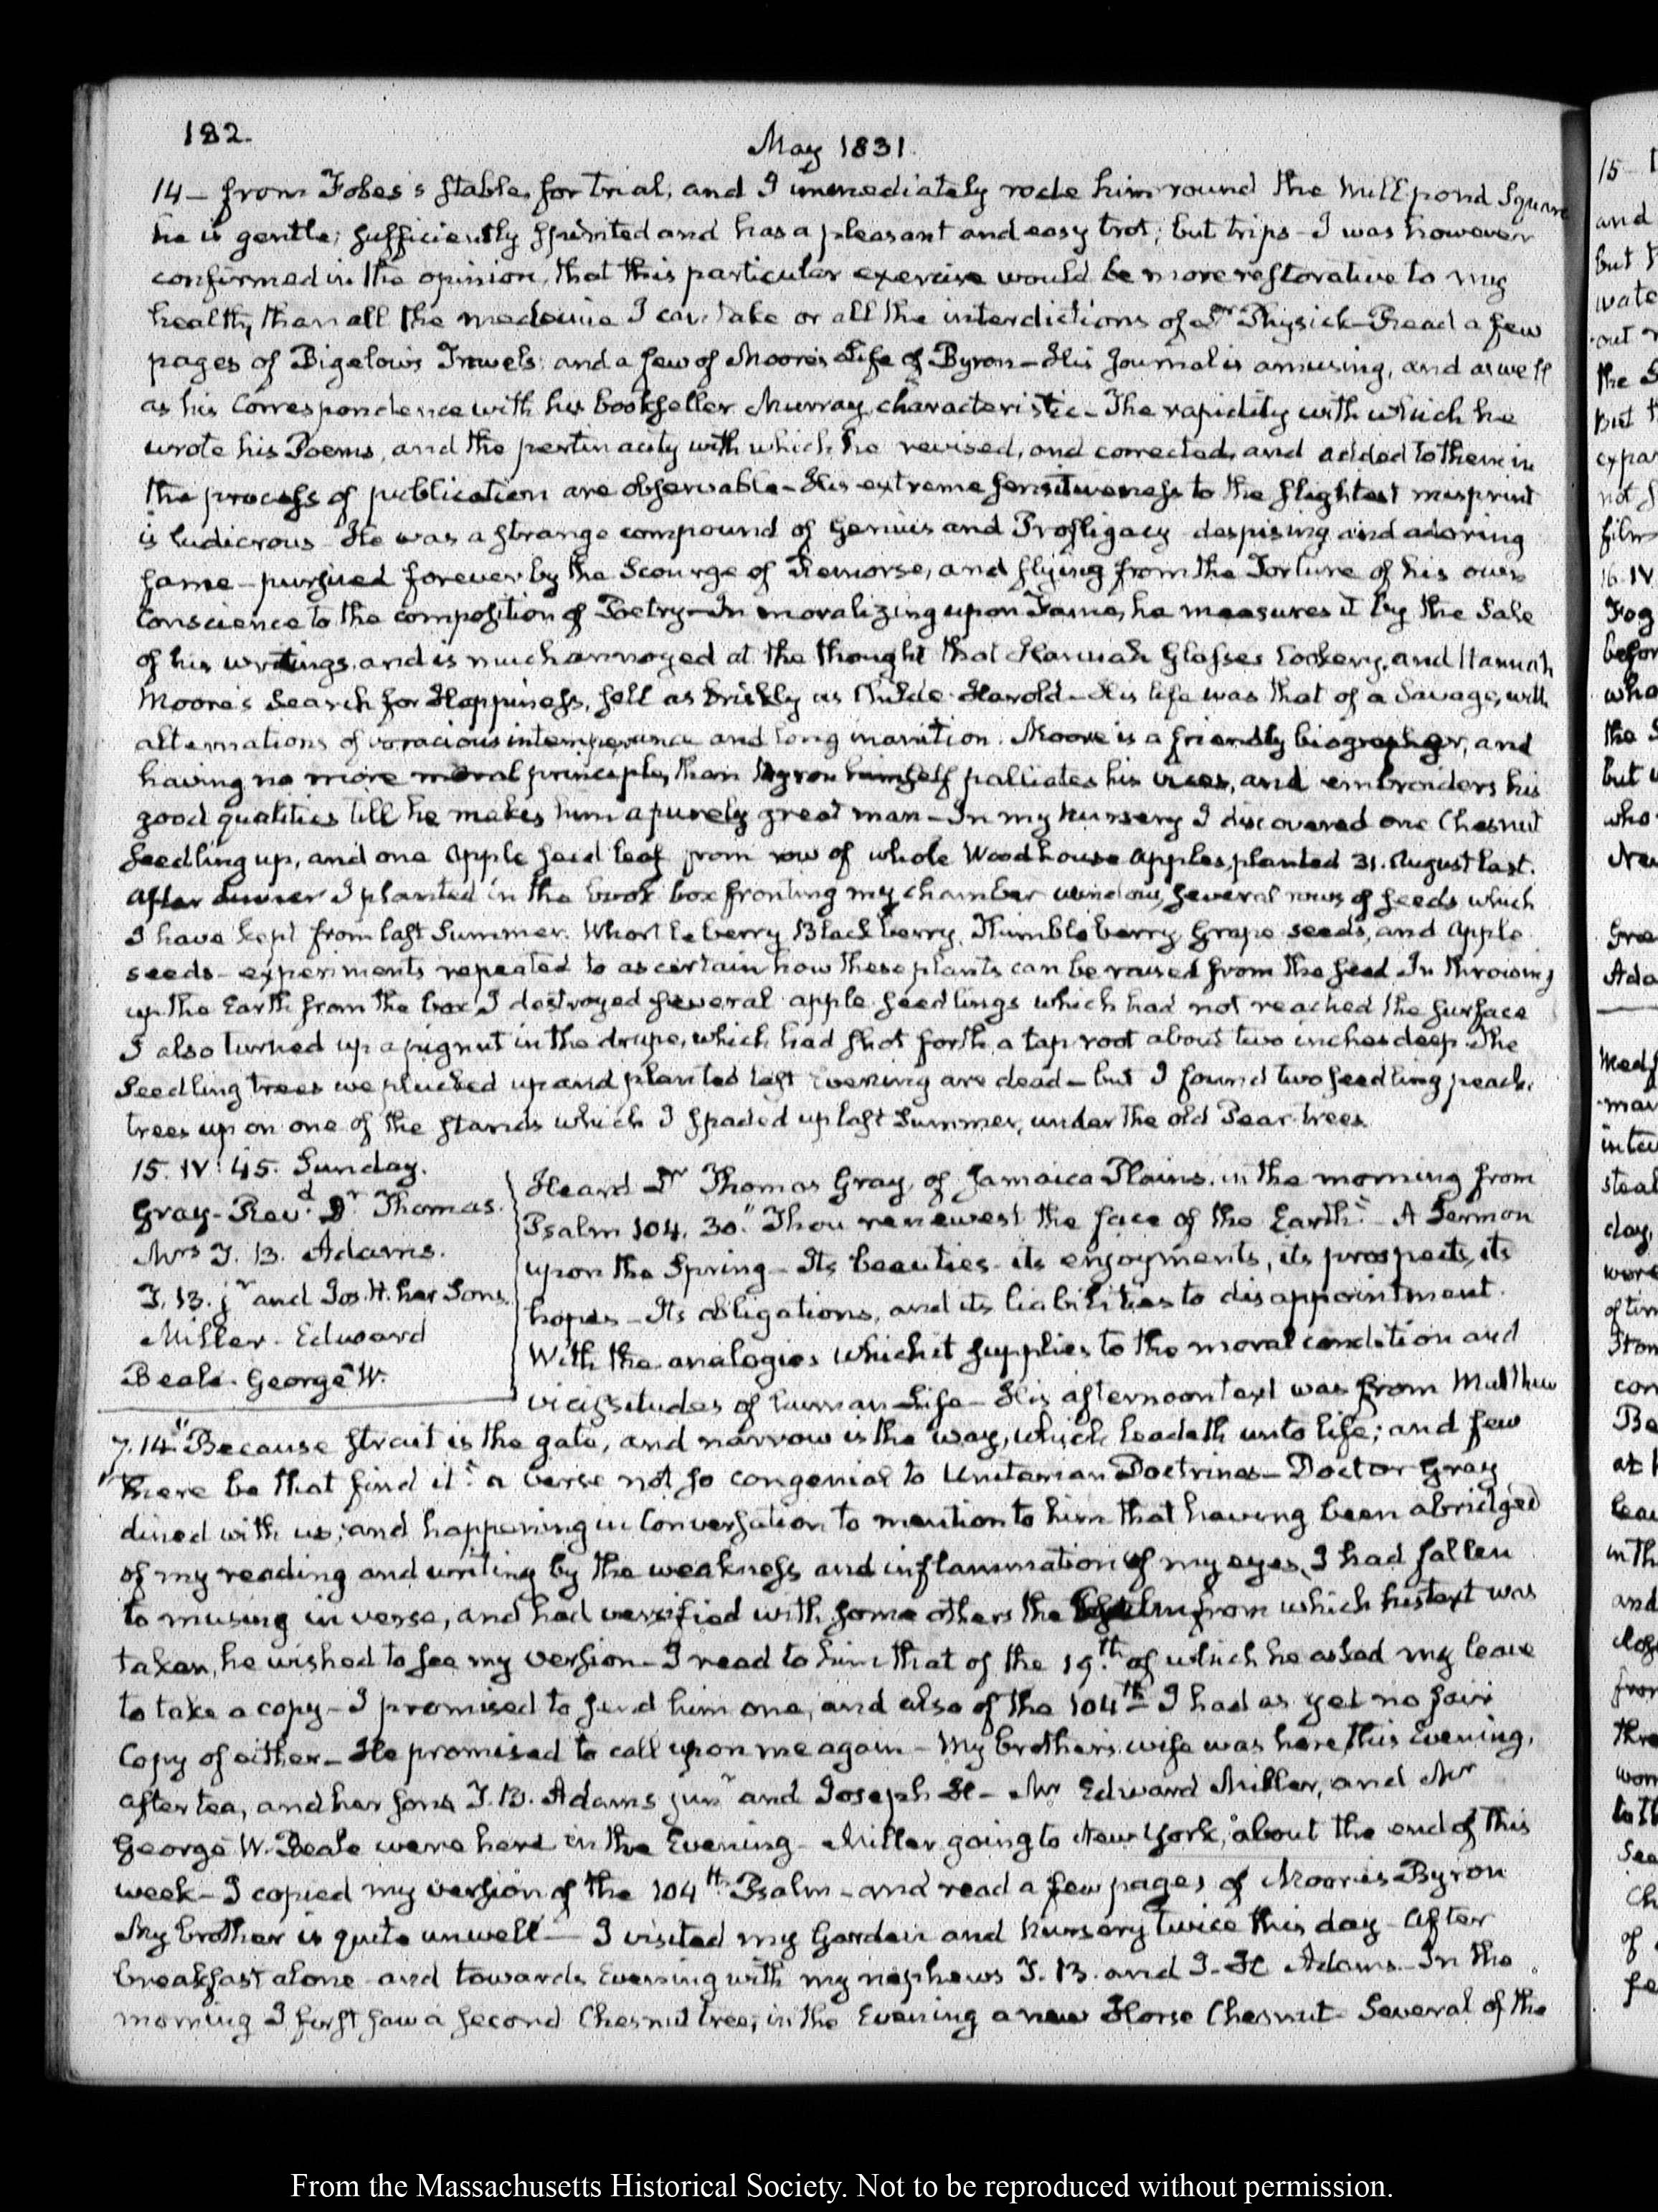 182.
May 1831.
14 — from Fobes's stable, for trial; and I immediately rode him round the Mill pond Square
he is gentle; sufficiently spirited and has a pleasant and easy trot; but trips — I was however
confirmed in the opinion, that this particular exercise would be more restorative to my
health, than all the medicine I can take or all the interdictions of Dr Physick — Read a few
pages of Bigelow's Travels; and a few of Moore's Life of Byron — His Journal is amusing, and as well
as his Correspondence with his bookseller Murray, characteristic — The rapidity with which he
wrote his Poems, and the pertinacity with which he revised, and corrected, and added to them in
the process of publication are observable — His extreme sensitiveness to the slightest misprint
is ludicrous — He was a strange compound of Genius and Profligacy — despising and adoring
fame — pursued forever by the Scourge of Remorse, and flying from the Torture of his own
Conscience to the composition of Poetry — In moralizing upon Fame, he measures it by the Sale
of his writings, and is much annoyed at the thought that Hannah Glasses Cookery, and Hannah
Moore's Search for Happiness, sell as briskly as Childe Harold — His life was that of a Savage, with
alternations of voracious intemperance and long inanition. Moore is a friendly biographer, and
having no more moral principle, than Byron himself palliates his vices, and embroiders his
good qualities till he makes him a purely great man — In my nursery I discovered one Chesnut
seedling up, and one apple seed leaf from row of whole Woodhouse apples, planted 31. August last.
After dinner I planted in the box fronting my chamber window, several rows of seeds which
I have kept from last Summer. Whortleberry, Blackberry, Thimbleberry, Grape seeds, and Apple
seeds — experiments repeated to ascertain how these plants can be raised from the seed. In throwing
up the Earth from the box I destroyed several apple seedlings which had not reached the surface
I also turned up a pignut in the drupe, which had shot forth a tap root about two inches deep. The
Seedling trees we plucked up and planted last Evening are dead — but I found two seedling peach
trees up on one of the stands which I spaded up last Summer, under the old Pear-trees.
15. IV: 45. Sunday.
Gray — Revd. Dr. Thomas.
Mrs T. B. Adams.
T. B. jr and Jos. H. her Sons.
Miller — Edward
Beale — George W.
Heard Dr Thomas Gray, of Jamaica Plains, in the morning from
Psalm 104. 30. "Thou renewest the face of the Earth." — A Sermon
upon the Spring — Its beauties — its enjoyments, its prospects, its
hopes — Its obligations, and its liabilities to disappointment.
With the analogies which it supplies to the moral condition and
vicissitudes of human Life — His afternoon text was from Matthew
7. 14. "Because strait is the gate, and narrow is the way, which leadeth unto life; and few
"there be that find it." a verse not so congenial to Unitarian Doctrines — Doctor Gray
dined with us; and happening in Conversation to mention to him that having been abridged
of my reading and writing by the weakness and inflammation of my eyes, I had fallen
to musing in verse, and had versified with some others the Psalm from which his text was
taken, he wished to see my version — I read to him that of the 19th. of which he asked my leave
to take a copy — I promised to send him one, and also of the 104th I had as yet no fair
Copy of either — He promised to call upon me again — My brother's wife was here, this Evening,
after tea, and her sons T. B. Adams junr and Joseph H — Mr Edward Miller, and Mr
George W. Beale were here in the Evening — Miller going to New York, about the end of this
week — I copied my version of the 104th. Psalm — and read a few pages of Moore's Byron
My brother is quite unwell — I visited my Garden and Nursery twice this day — After
breakfast alone — and towards Evening with my nephews T. B. and J. H Adams — In the
morning I first saw a second Chesnut tree; in the Evening a new Horse Chesnut — Several of the
From the Massachusetts Historical Society. Not to be reproduced without permission.